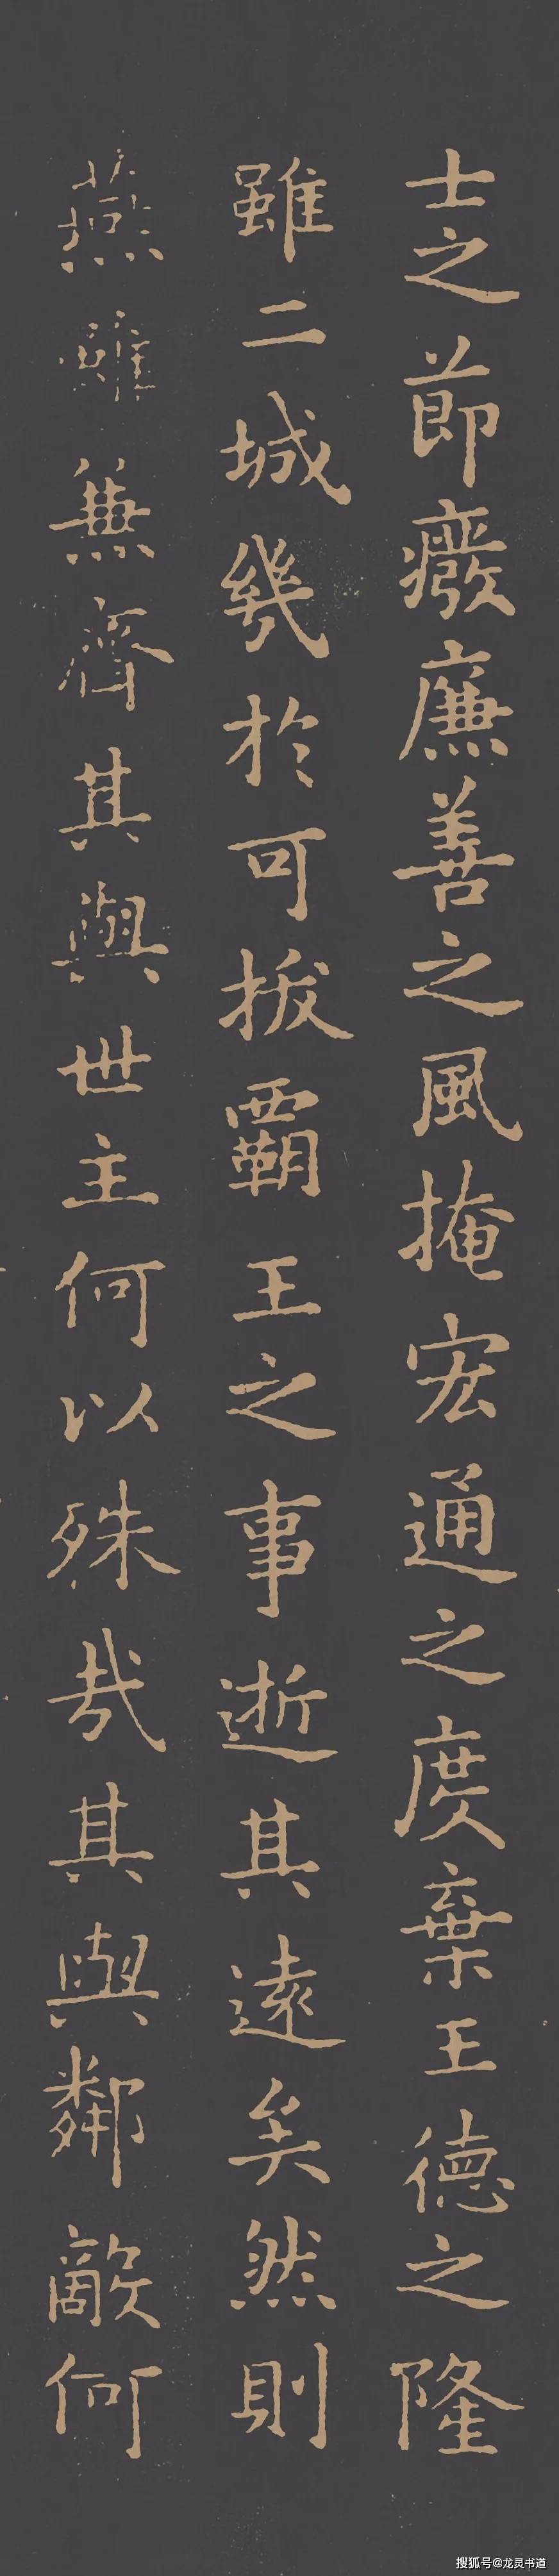 士之節廢廉善之風掩宏通之度棄王德之隆
雖二城幾於可拔霸王之事逝其遠矣然則
燕雖兼齊其與世主何以殊哉其與鄰敵何
搜狐号@龙灵书道